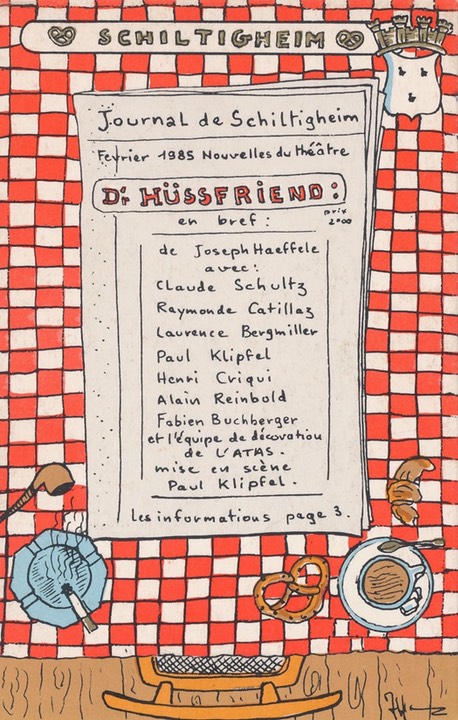 SCHILTIGHEIM
Journal de Schiltigheim
Fevrier 1985 Nouvelles du théâtre
Dr HÜSSFRIEND:
en bref:
prix
2000
de Joseph Haeffele
avec:
Claude Schultz
Raymonde Catillaz
Laurence Bergmiller
Paul Klipfel
Henri Criqui
Alain Reinbold
Fabien Buchberger
et l'équipe de décoration
de L'ATAS.
mise en scène
Paul Klipfel.
les informations page 3.